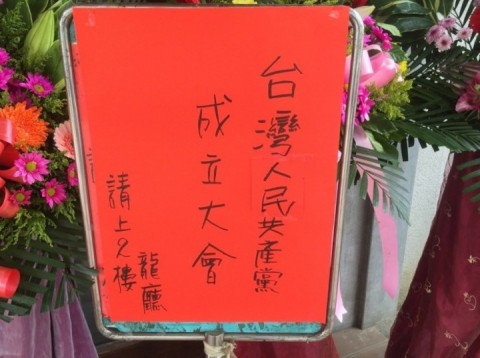 台灣人民共產黨
成立大會
龍廳
請上2樓